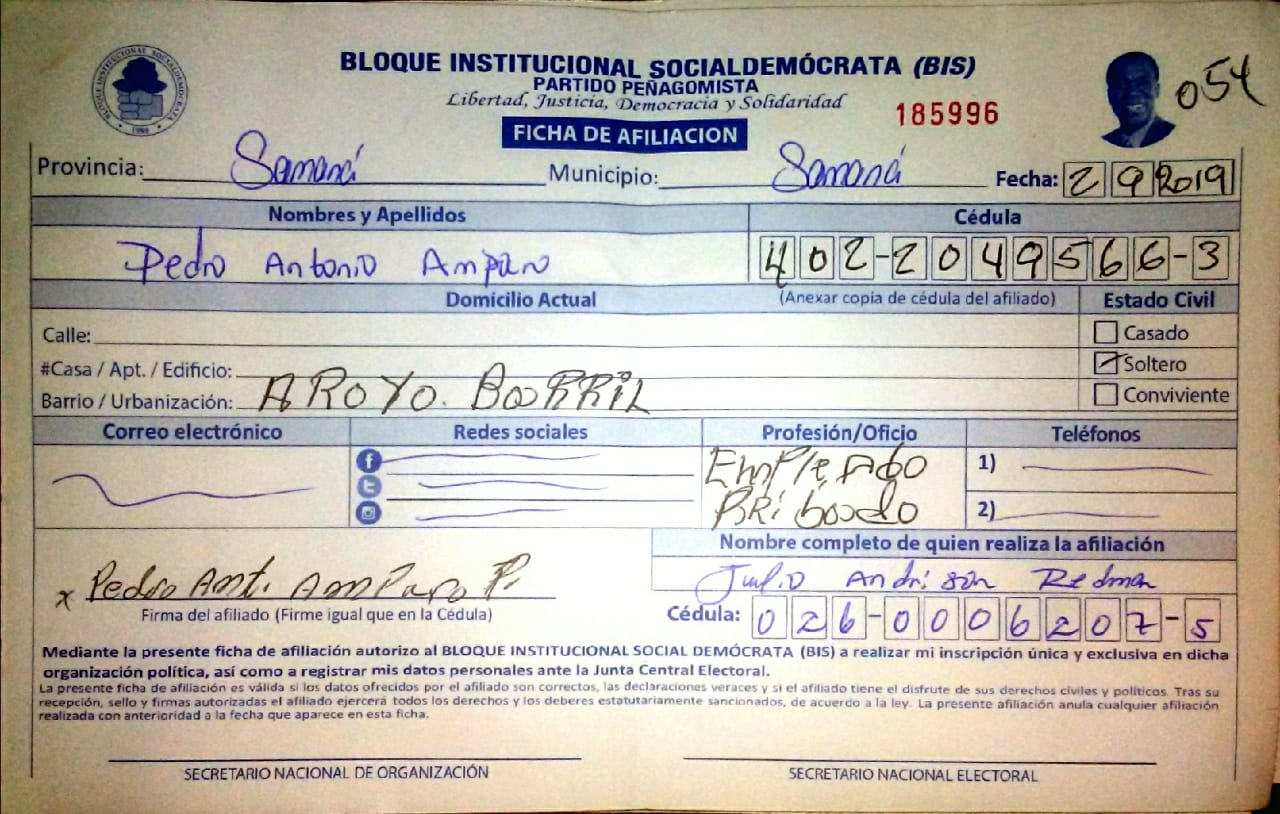 BLOQUE INSTITUCIONAL SOCIALDEMÓCRATA (BIS)
PARTIDO PEÑAGOMISTA
Libertad, Justicia, Democracia y Solidaridad
185996
054
FICHA DE AFILIACION
Provincia: Samaná Municipio: Samaná Fecha: 2 9 2019
Nombres y Apellidos Cédula
Pedro Antonio Amparo 402-2049566-3
Domicilio Actual (Anexar copia de cédula del afiliado) Estado Civil
Calle: Casado
#Casa / Apt. / Edificio: Soltero
Barrio / Urbanización: AROYO. BARRIL Conviviente
Correo electrónico Redes sociales Profesión/Oficio Teléfonos
EmPleAdo 1)
PRibado 2)
Nombre completo de quien realiza la afiliación
Julio Andrison Redman
x Pedro Ant. AmParo P.
Firma del afiliado (Firme igual que en la Cédula) Cédula: 026-0006207-5
Mediante la presente ficha de afiliación autorizo al BLOQUE INSTITUCIONAL SOCIAL DEMÓCRATA (BIS) a realizar mi inscripción única y exclusiva en dicha
organización política, así como a registrar mis datos personales ante la Junta Central Electoral.
La presente ficha de afiliación es válida si los datos ofrecidos por el afiliado son correctos, las declaraciones veraces y si el afiliado tiene el disfrute de sus derechos civiles y políticos. Tras su
recepción, sello y firmas autorizadas el afiliado ejercerá todos los derechos y los deberes estatutariamente sancionados, de acuerdo a la ley. La presente afiliación anula cualquier afiliación
realizada con anterioridad a la fecha que aparece en esta ficha.
SECRETARIO NACIONAL DE ORGANIZACIÓN SECRETARIO NACIONAL ELECTORAL